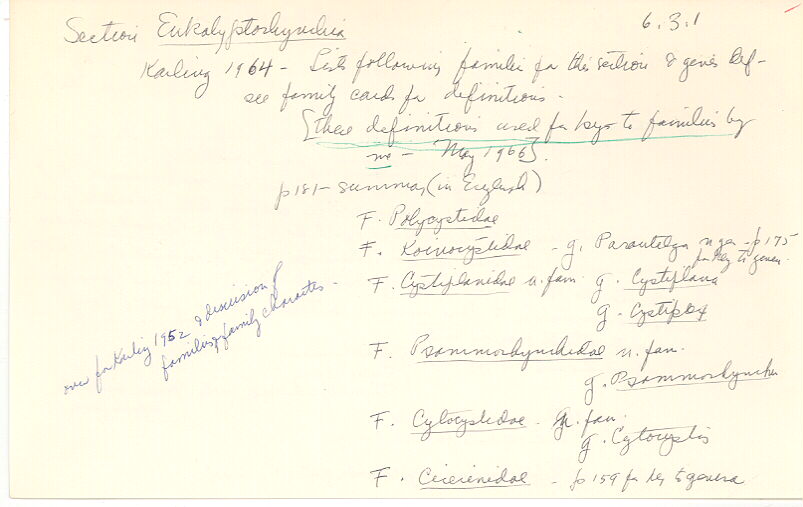 Section Eukalyptorhynchia
6.3.1
Karling 1964 - Lists following families for this section & gives def-
see family cards for definitions.
[these definitions used for keys to families by
me - May 1966].
p181 - summary (in English)
F. Polycystidae
F. Koinocystidae - g. Parautelga n gen - p175
for key to genera
F. Cystiplanidae n. fam g. Cystiplana
g. Cystiplex
F. Psammorhynchidae n. fam.
g. Psammorhynchus
F. Cytocystidae - n. fam.
g. Cytocystis
F. Cicerinidae - p159 for key to genera
over for Karling 1952 & discussion of
families & family characters -